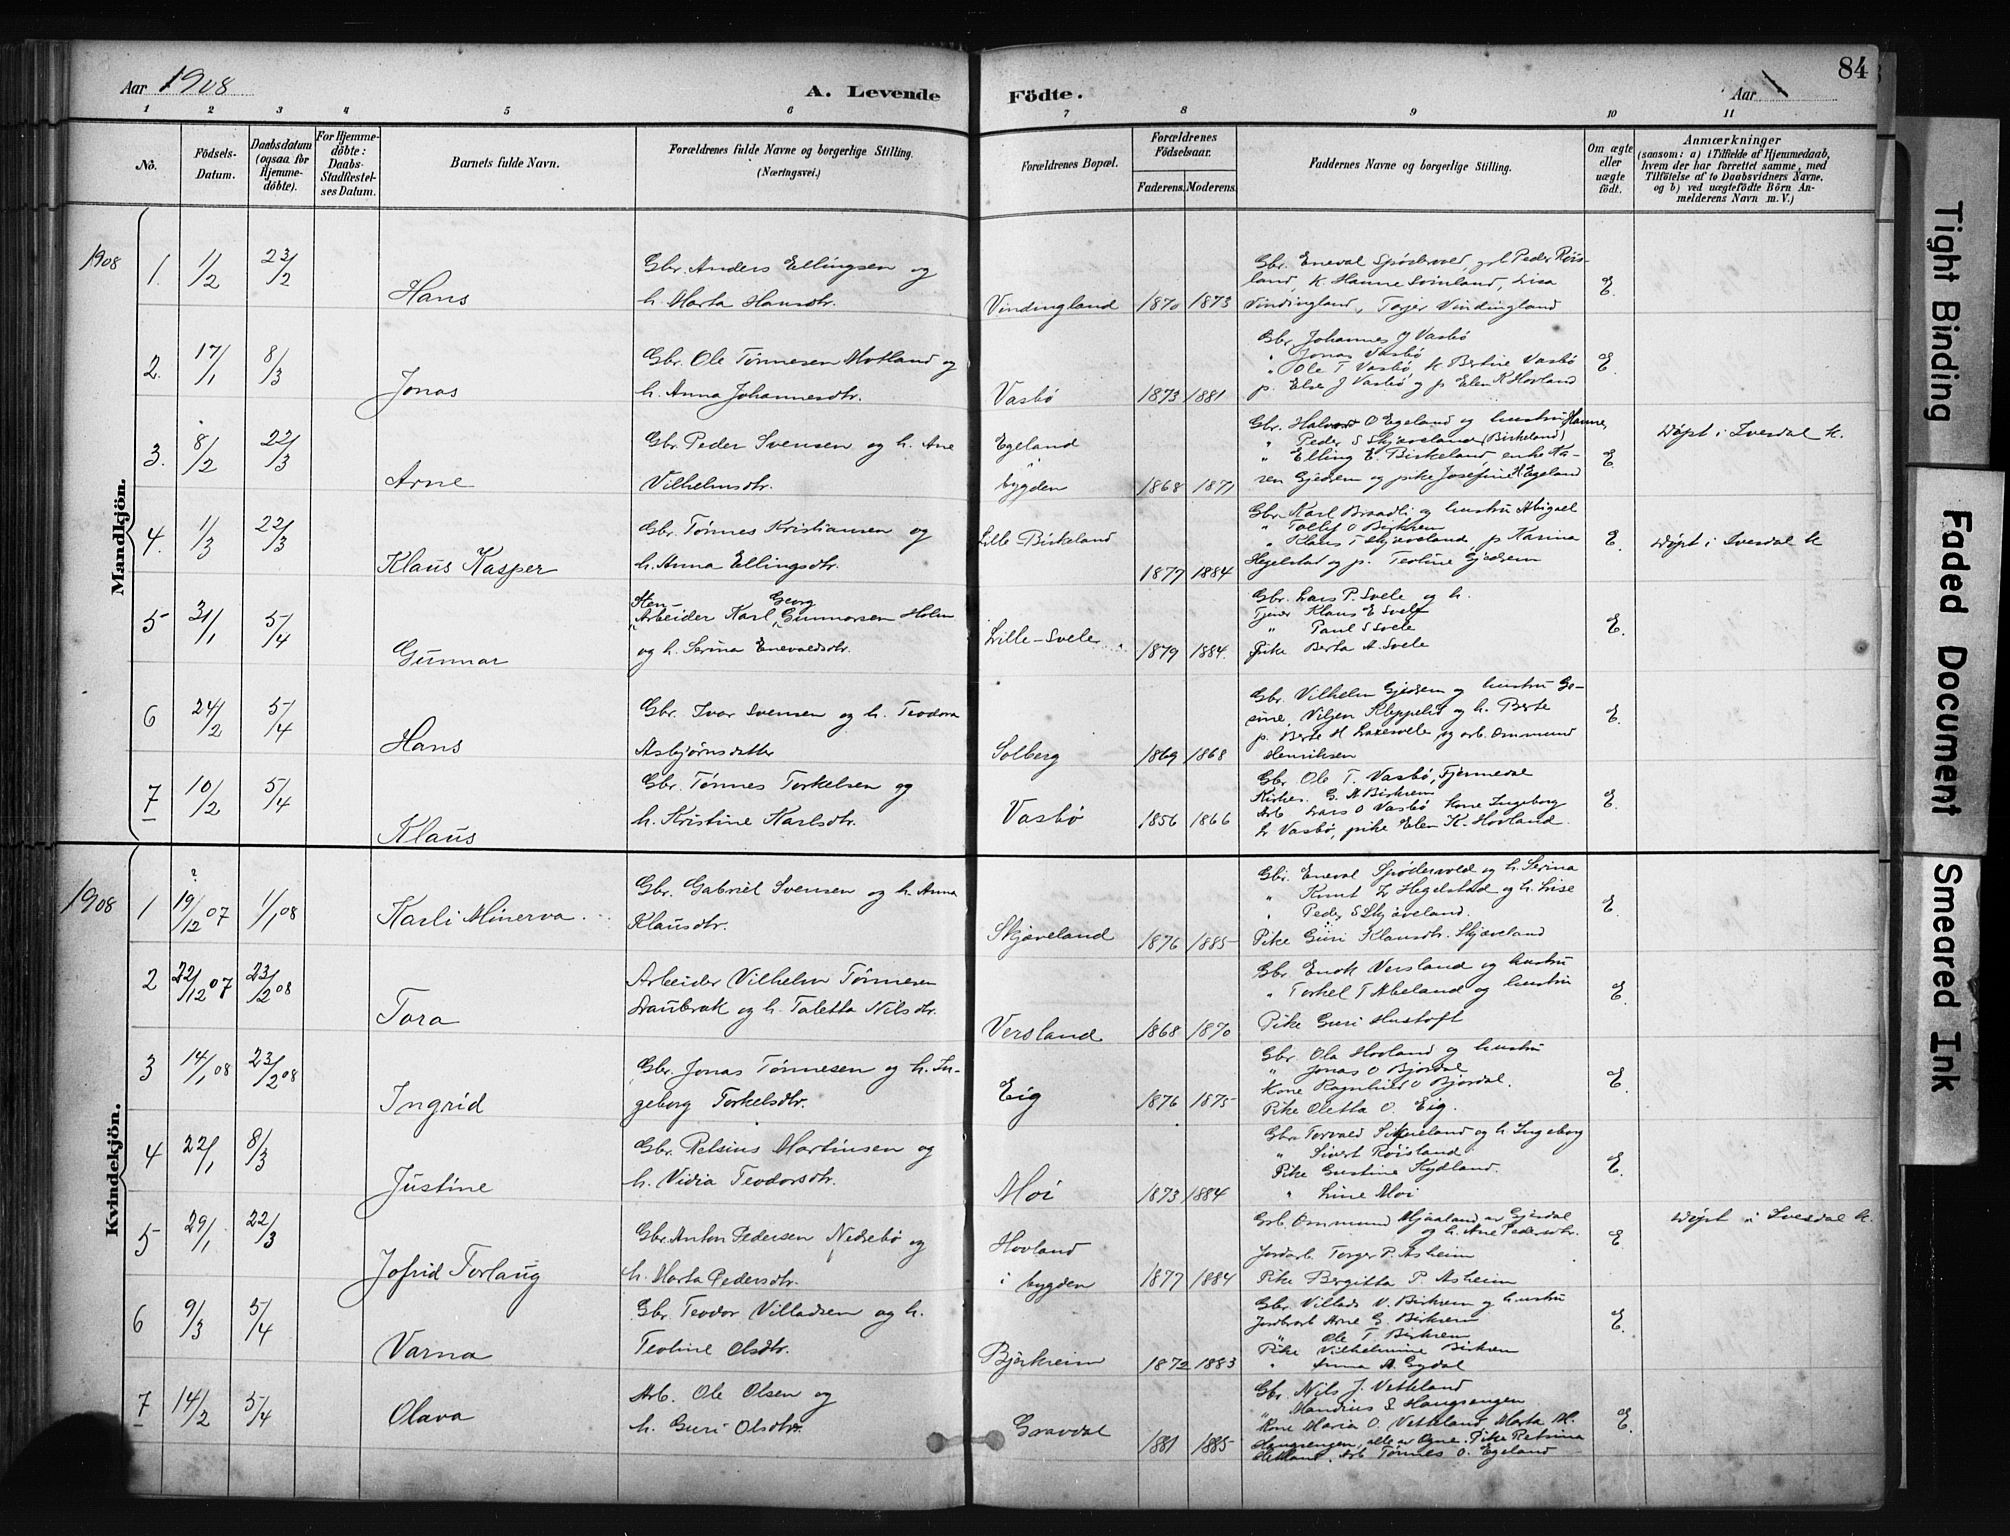 84
Aar 1908
A. Levende Födte.
Aar
1 2 3 4 5 6 7 8 9 10 11
Nô. Födsels-Datum. Daabsdatum (ogsaa for Hjemme-döbte). For Hjemme-döbte: Daabs-Stadfæstel-ses Datum. Barnets fulde Navn. Forældrenes fulde Navne og borgerlige Stilling. (Næringsvei.) Forældrenes Bopæl. Forældrenes Födselsaar. Faderens. Moderens. Faddernes Navne og borgerlige Stilling. Om ægte eller uægte födt. Anmærkninger (saasom: a) i Tilfælde af Hjemmedaab, hvem der har forrettet samme, med Tilföielse af to Daabsvidners Navne, og b) ved uægtefödte Börn An-melderens Navn m. V.)
Mandkjön.
1908 1. 1/2 23/2 Hans
Gbr. Anders Ellingsen og
h. Marta Hansdtr.
Vindingland 1870 1873
Gbr. Eneval Spödervold, gbr Peder Røis-
land, k. Hanne Svinland, Lisa
Vindingland, Torjer Vindingland
E.
2. 17/1 8/3 Jonas
Gbr. Ole Tønnesen Motland og
h. Anna Johannesdtr.
Vasbö 1873 1881
Gbr. Johannes J Vasbö
" Jonas Vasbö
" Ole T Vasbö, k Bertine Vasbö
p. Else J Vasbö, og p Elen K Hovland
E.
3. 8/2 22/3 Arne
Gbr. Peder Svensen og h. Ane
Vilhelmsdtr.
Egeland
i bygden 1868 1871
Gbr. Halvard O Egeland og hustru Hanne,
" Peder S Skjæveland (Birkeland)
" Elling E. Birkeland, enke Ka-
ren Gjedrem og pike Josefine H Egeland
E.
Døpt i Ivesdal k.
4. 1/3 22/3 Klaus Kasper
Gbr. Tønnes Kristiansen og
h. Anna Ellingsdtr.
Lille-Birkeland 1877 1884
Gbr. Karl Braadli og hustru Abigael
" Tollef O Birkrem
" Klaus T Skjæveland, p Karina
Hegelstad og p. Teoline Gjedrem
E.
Døpt i Ivesdal k
5 31/1 5/4 Gunnar
Georg
Arbeider Karl Gunnarsen Holm
og h. Serina Enevaldsdtr.
Lille-Svele 1879 1884.
Gbr. Lars P. Svele og h.
Tjener Klaus E Svele
" Paul S Svele
Pike Berta A. Svele
E.
6 24/2 5/4 Hans
Gbr. Ivar Svensen og h. Teodora
Asbjørnsdatter
Solberg 1869 1868
Gbr. Vilhelm Gjedrem og hustru Ge-
sine, Viljen Kleppelid og h. Berte
p. Berte H Laxesvele, og arb. Ommund
Henriksen
E.
7 10/2 5/4 Klaus
Gbr. Tønnes Torkelsen og
h. Kristine Karlsdtr.
Vasbö 1856 1866
Gbr. Ole T. Vasbö, Fjermedal
Kirkes. G. A Birkrem
Arb Lars O Vasbö kone Ingeborg
L Vasbö, pike Elen K. Hovland.
E.
Kvindekjön.
1908 1 19/12 07 ? 1/1 08 Karli Minerva
Gbr. Gabriel Svensen og h. Anna
Klausdtr.
Skjæveland 1876 1885
Gbr. Eneval Spödervold og h. Serina
" Knut L Hegelstad og h. Lise
" Peder S Skjæveland.
Pike Guri Klausdtr. Skjæveland
E.
2 22/12 07 23/2 08 Tora
Arbeider Vilhelm Tønnesen
Draubrak og h. Taletta Nilsdtr.
Versland 1868 1870
Gbr. Enok Versland og hustru
" Torkel T Abeland og hustru
Pike Guri Hustoft
E.
3 14/1 08 23/2 08 Ingrid
Gbr. Jonas Tønnesen og h. In-
geborg Torkelsdtr.
Eig 1876 1875
Gbr. Ola Hovland og hustru
" Jonas O Bjordal
Kone Ragnhild O Bjordal.
Pike Oletta O. Eig.
E.
4 22/1 8/3 Justine
Gbr. Retsius Martinsen og
h. Vidia Teodorsdtr.
Moi 1873 1884
Gbr. Torvald Sikveland og h. Ingeborg
" Sivert Røisland.
Pike Gustine Kydland.
" Line Moi
E.
5 29/1 22/3 Jofrid Torlaug
Gbr. Anton Pedersen Nedrebø og
h. Marta Pedersdtr.
Hovland
i bygden 1877 1884
Gbr. Ommund Mjaaland av Gjesdal
og h. Ane Pedersdtr.
Jordarb. Torger P. Asheim
Pike Bergitta P. Asheim
E
Døpt i Ivesdal k.
6 9/3 5/4 Varna
Gbr. Teodor Villadsen og h.
Teoline Olsdtr.
Bjerkreim 1872 1883
Gbr. Villads V. Birkrem og hustru
Jordbrarb Arne G. Birkrem
" Ole T. Birkrem
Pike Vilhelmine Birkrem
" Anna A. Gydal
E.
7 14/2 5/4 Olava
Arb. Ole Olsen og
h. Guri Olsdtr
Gravdal 1881 1885
Gbr. Nils J. Vetteland
" Mandius S Haugsengen
Kone Maria O. Vetteland Marta M.
Haugsengen, alle av Ogne. Pike Retsina
Hetland. Arb Tønnes O. Egeland
E.
Tight Binding
Faded Document
Smeared Ink